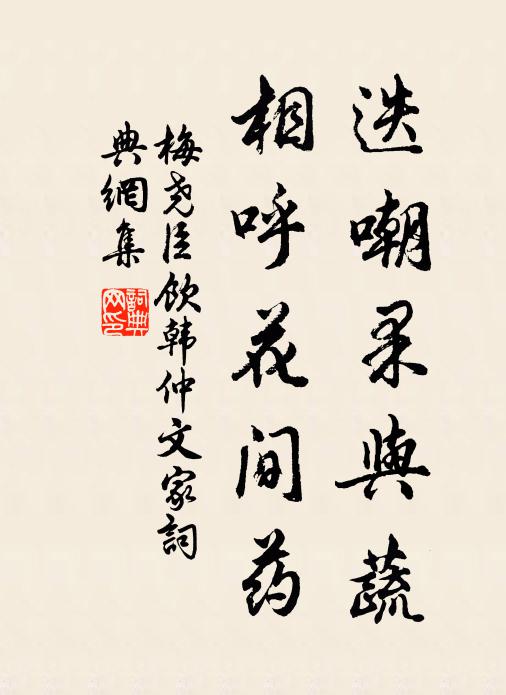 迭嘲果與蔬
相呼花间药
梅尧臣饮韩仲文家詞
典網集
詞典
网印